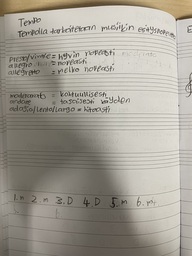 Tempo
Tempolla tarkoitetaan musiikin esitysnopeutta
Presto/vivace = hyvin nopeasti
allegro = nopeasti
allegretto = melko nopeasti
moderato = kohtuullisesti
andante = tasaisesti käyden
adagio/lento/largo = hitaasti
1. m 2 m 3. D 4 D 5. m 6. m